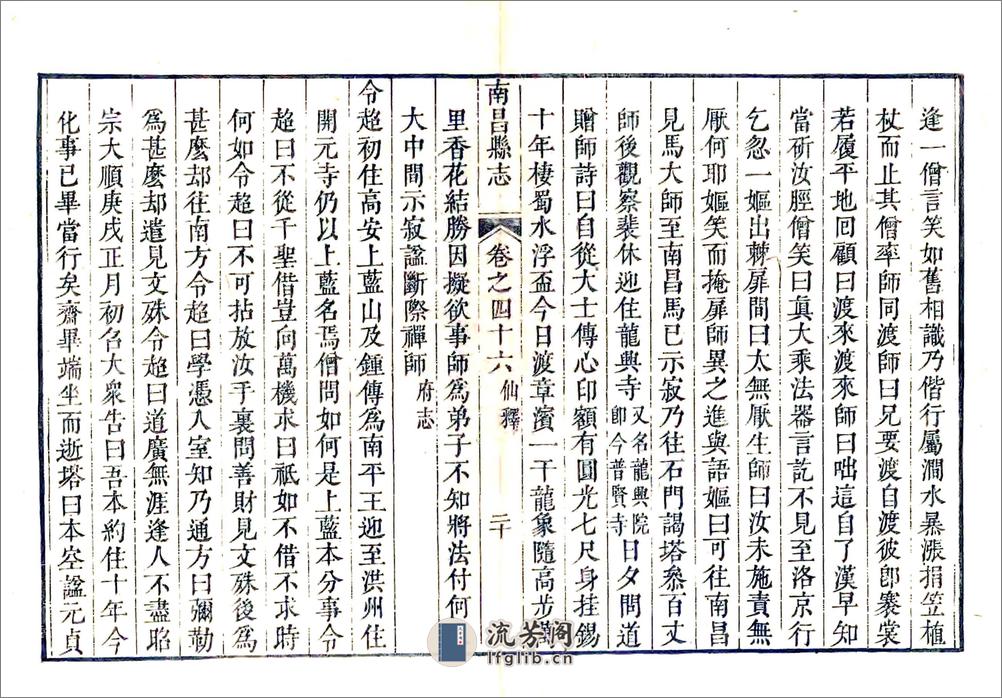 逢一僧言笑如舊相識乃偕行屬澗水暴漲捐笠植
杖而止其僧率師同渡師曰兄要渡自渡彼卽褰裳
若履平地回顧曰渡來渡來師曰咄這自了漢早知
當斫汝脛僧笑曰眞大乘法器言訖不見至洛京行
乞忽一嫗出棘扉間曰太無厭生師曰汝未施責無
厭何耶嫗笑而掩扉師異之進與語嫗曰可往南昌
見馬大師至南昌馬已示寂乃往石門謁塔叅百丈
師後觀察裴休迎住龍興寺又名龍興院卽今普賢寺日夕問道
贈師詩曰自從大士傳心印額有圓光七尺身挂錫
十年棲蜀水浮盃今日渡章濱一千龍象隨高步萬
南昌縣志 卷之四十六 仙釋 二十
里香花結勝因擬欲事師爲弟子不知將法付何
大中間示寂諡斷際禪師府志
令超初住高安上藍山及鍾傳爲南平王迎至洪州住
開元寺仍以上藍名焉僧問如何是上藍本分事令
超曰不從千聖借豈向萬機求曰祇如不借不求時
何如令超曰不可拈放汝手裏問善財見文殊後爲
甚麽却往南方令超曰學憑入室知乃通方曰彌勒
爲甚麽却遣見文殊令超曰道廣無涯逢人不盡昭
宗大順庚戌正月初名大衆告曰吾本約住十年今
化事已畢當行矣齋畢端坐而逝塔曰本空諡元貞
流芳閣
lfglib.cn